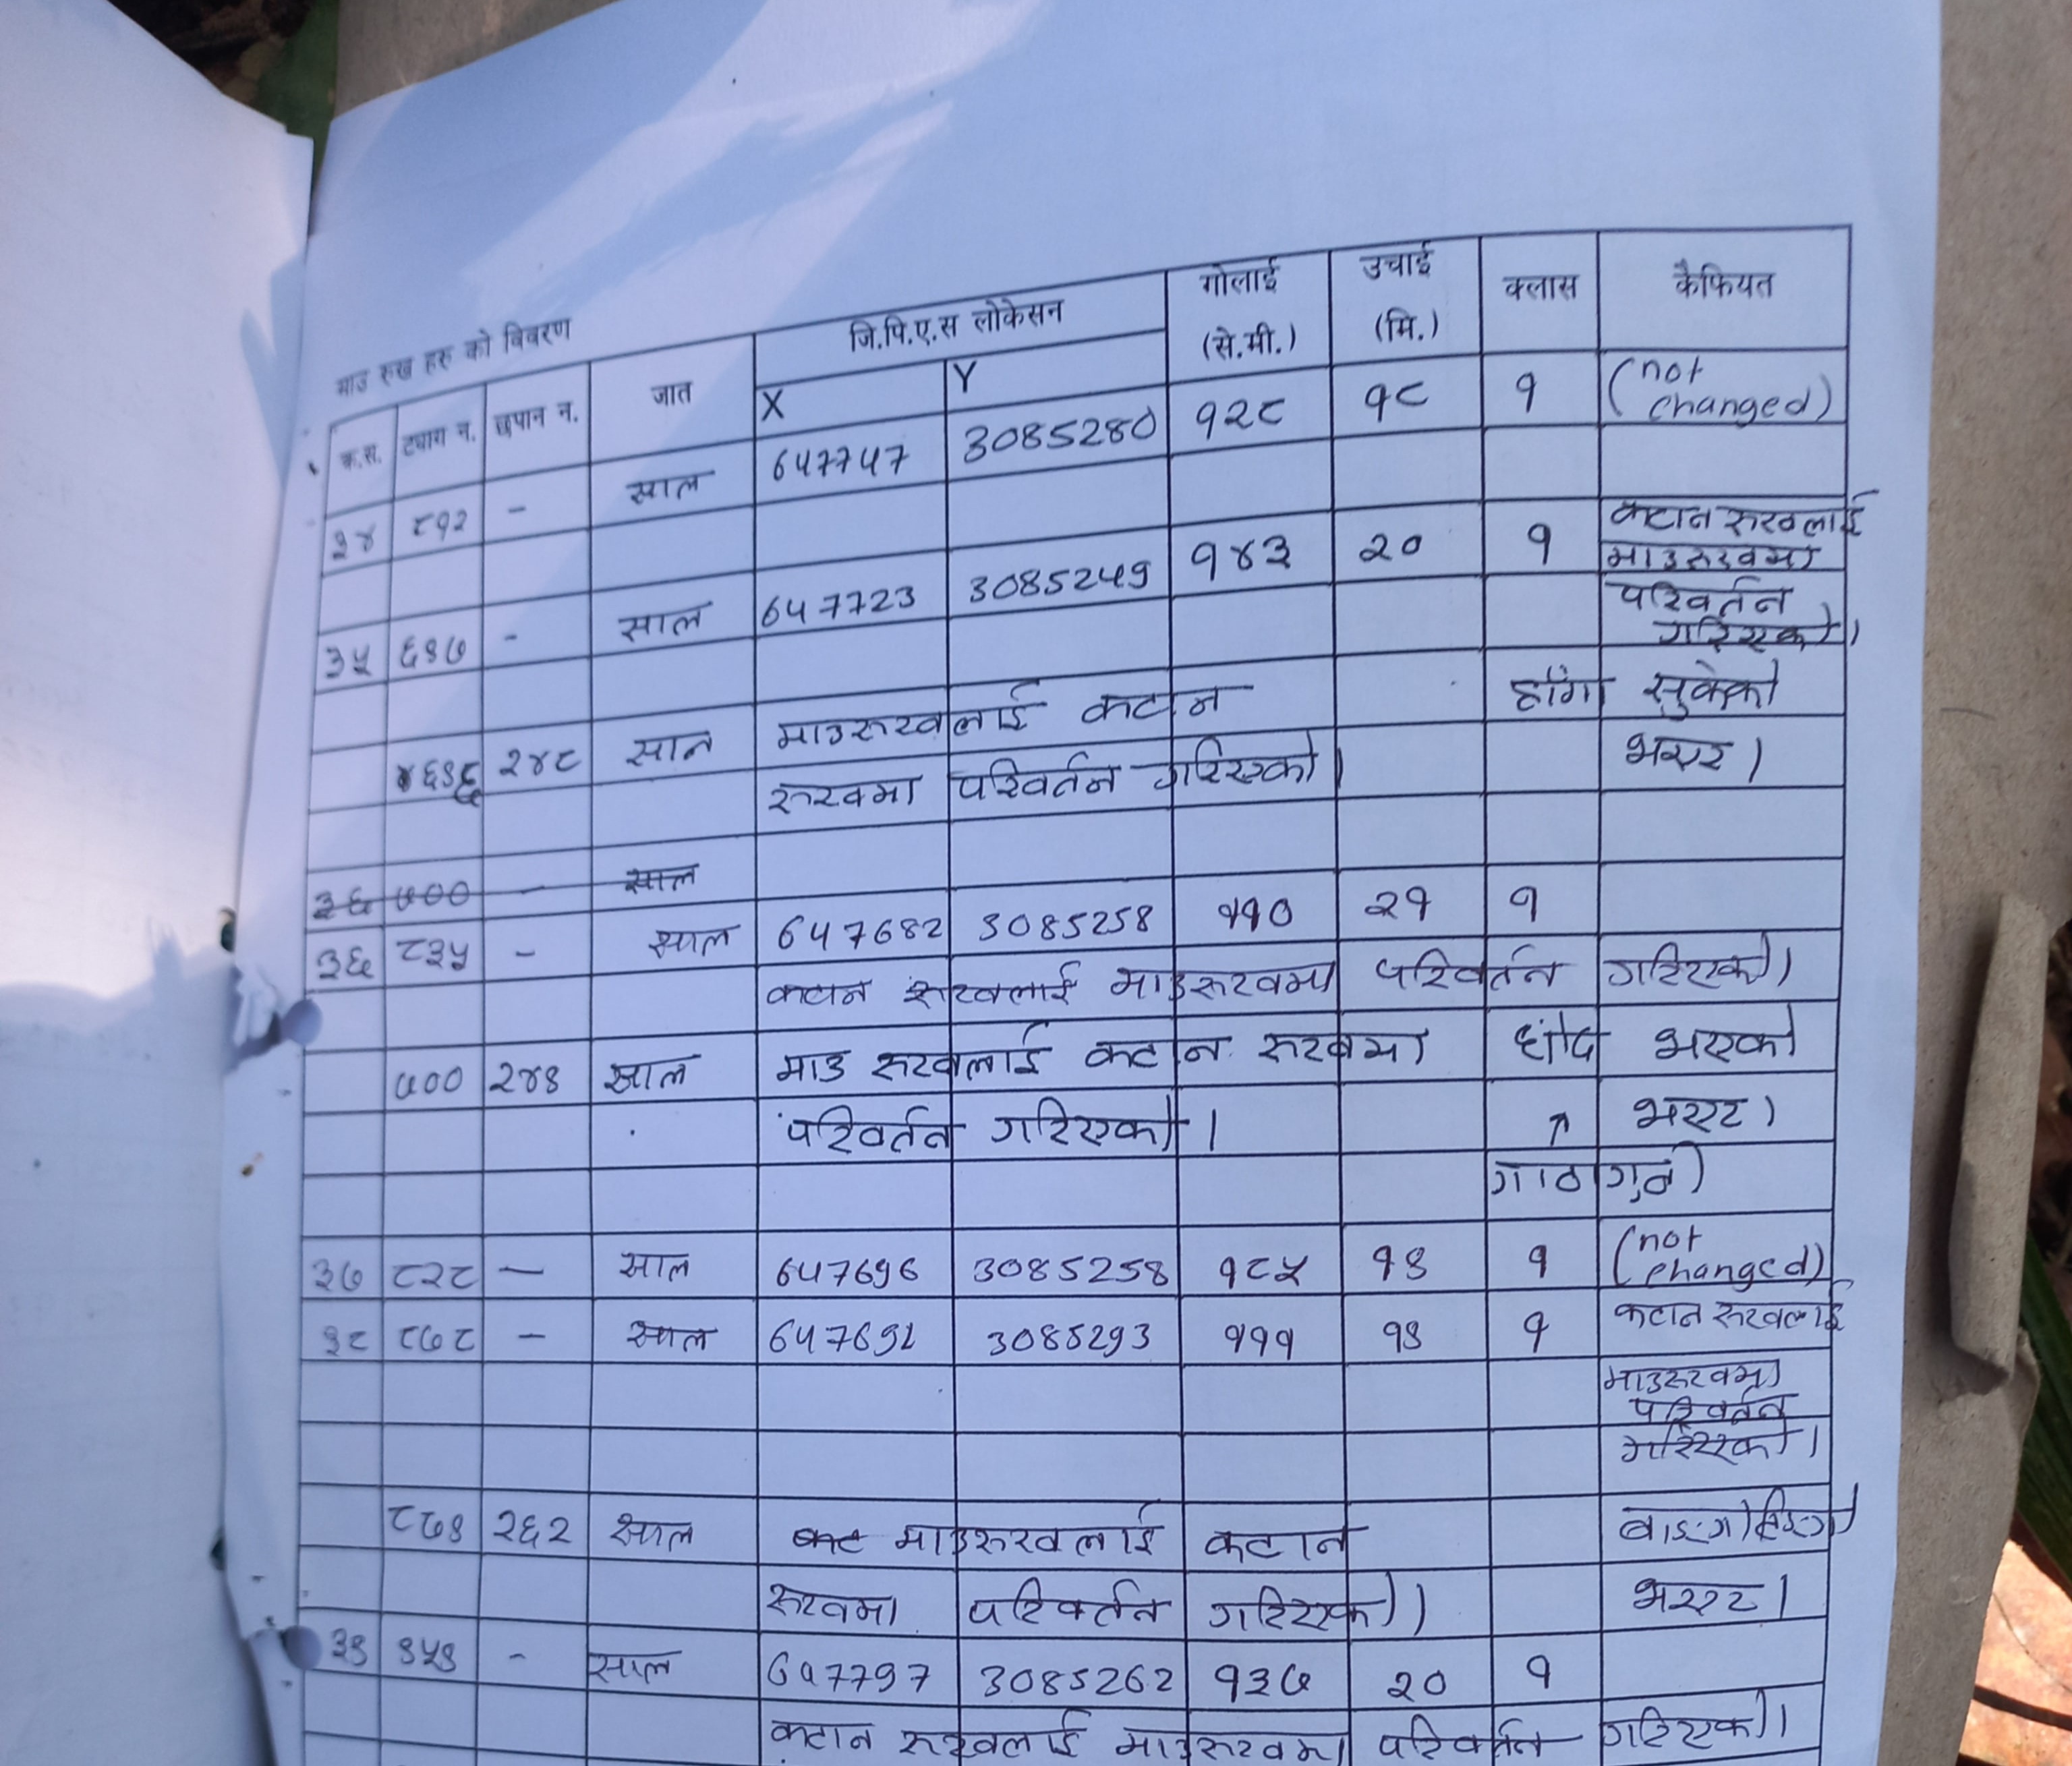 माउ रुख हरु को विवरण
क्र.स. ट्याग न. छपान न. जात जि.पि.ए.स लोकेसन गोलाई (से.मी.) उचाई (मि.) क्लास कैफियत
X Y
३४ ८१२ - साल 647747 3085280 १२८ १८ १ (not changed)
३५ ६९७ - साल 647723 3085249 १४३ २० १ कटान रुखलाई
माउरुखमा
परिवर्तन
गरिएको।
६९६ २४८ साल माउरुखलाई कटान हाँगा सुकेको
रुखमा परिवर्तन गरिएको। भएर।
३६ ७०० - साल
३६ ८३५ - साल 647682 3085258 ११० २१ १
कटान रुखलाई माउरुखमा परिवर्तन गरिएको।
७०० २४९ साल माउ रुखलाई कटान रुखमा धोद भएको
परिवर्तन गरिएको। भएर।
३७ ८२८ - साल 647696 3085258 १८५ १९ १ (not changed)
३८ ८७८ - साल 647692 3085293 १११ १९ १ कटान रुखलाई
माउरुखमा
परिवर्तन
गरिएको।
८७९ २६२ साल माउरुखलाई कटान
रुखमा परिवर्तन गरिएको। भएर।
३९ ९५९ - साल 647797 3085262 १३७ २० १
कटान रुखलाई माउरुखमा परिवर्तन गरिएको।